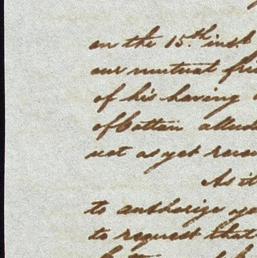 on the 15th inst
our mutual fri
of his having
of Cottain allud
not as yet rece
As it
to authorize yo
to request that